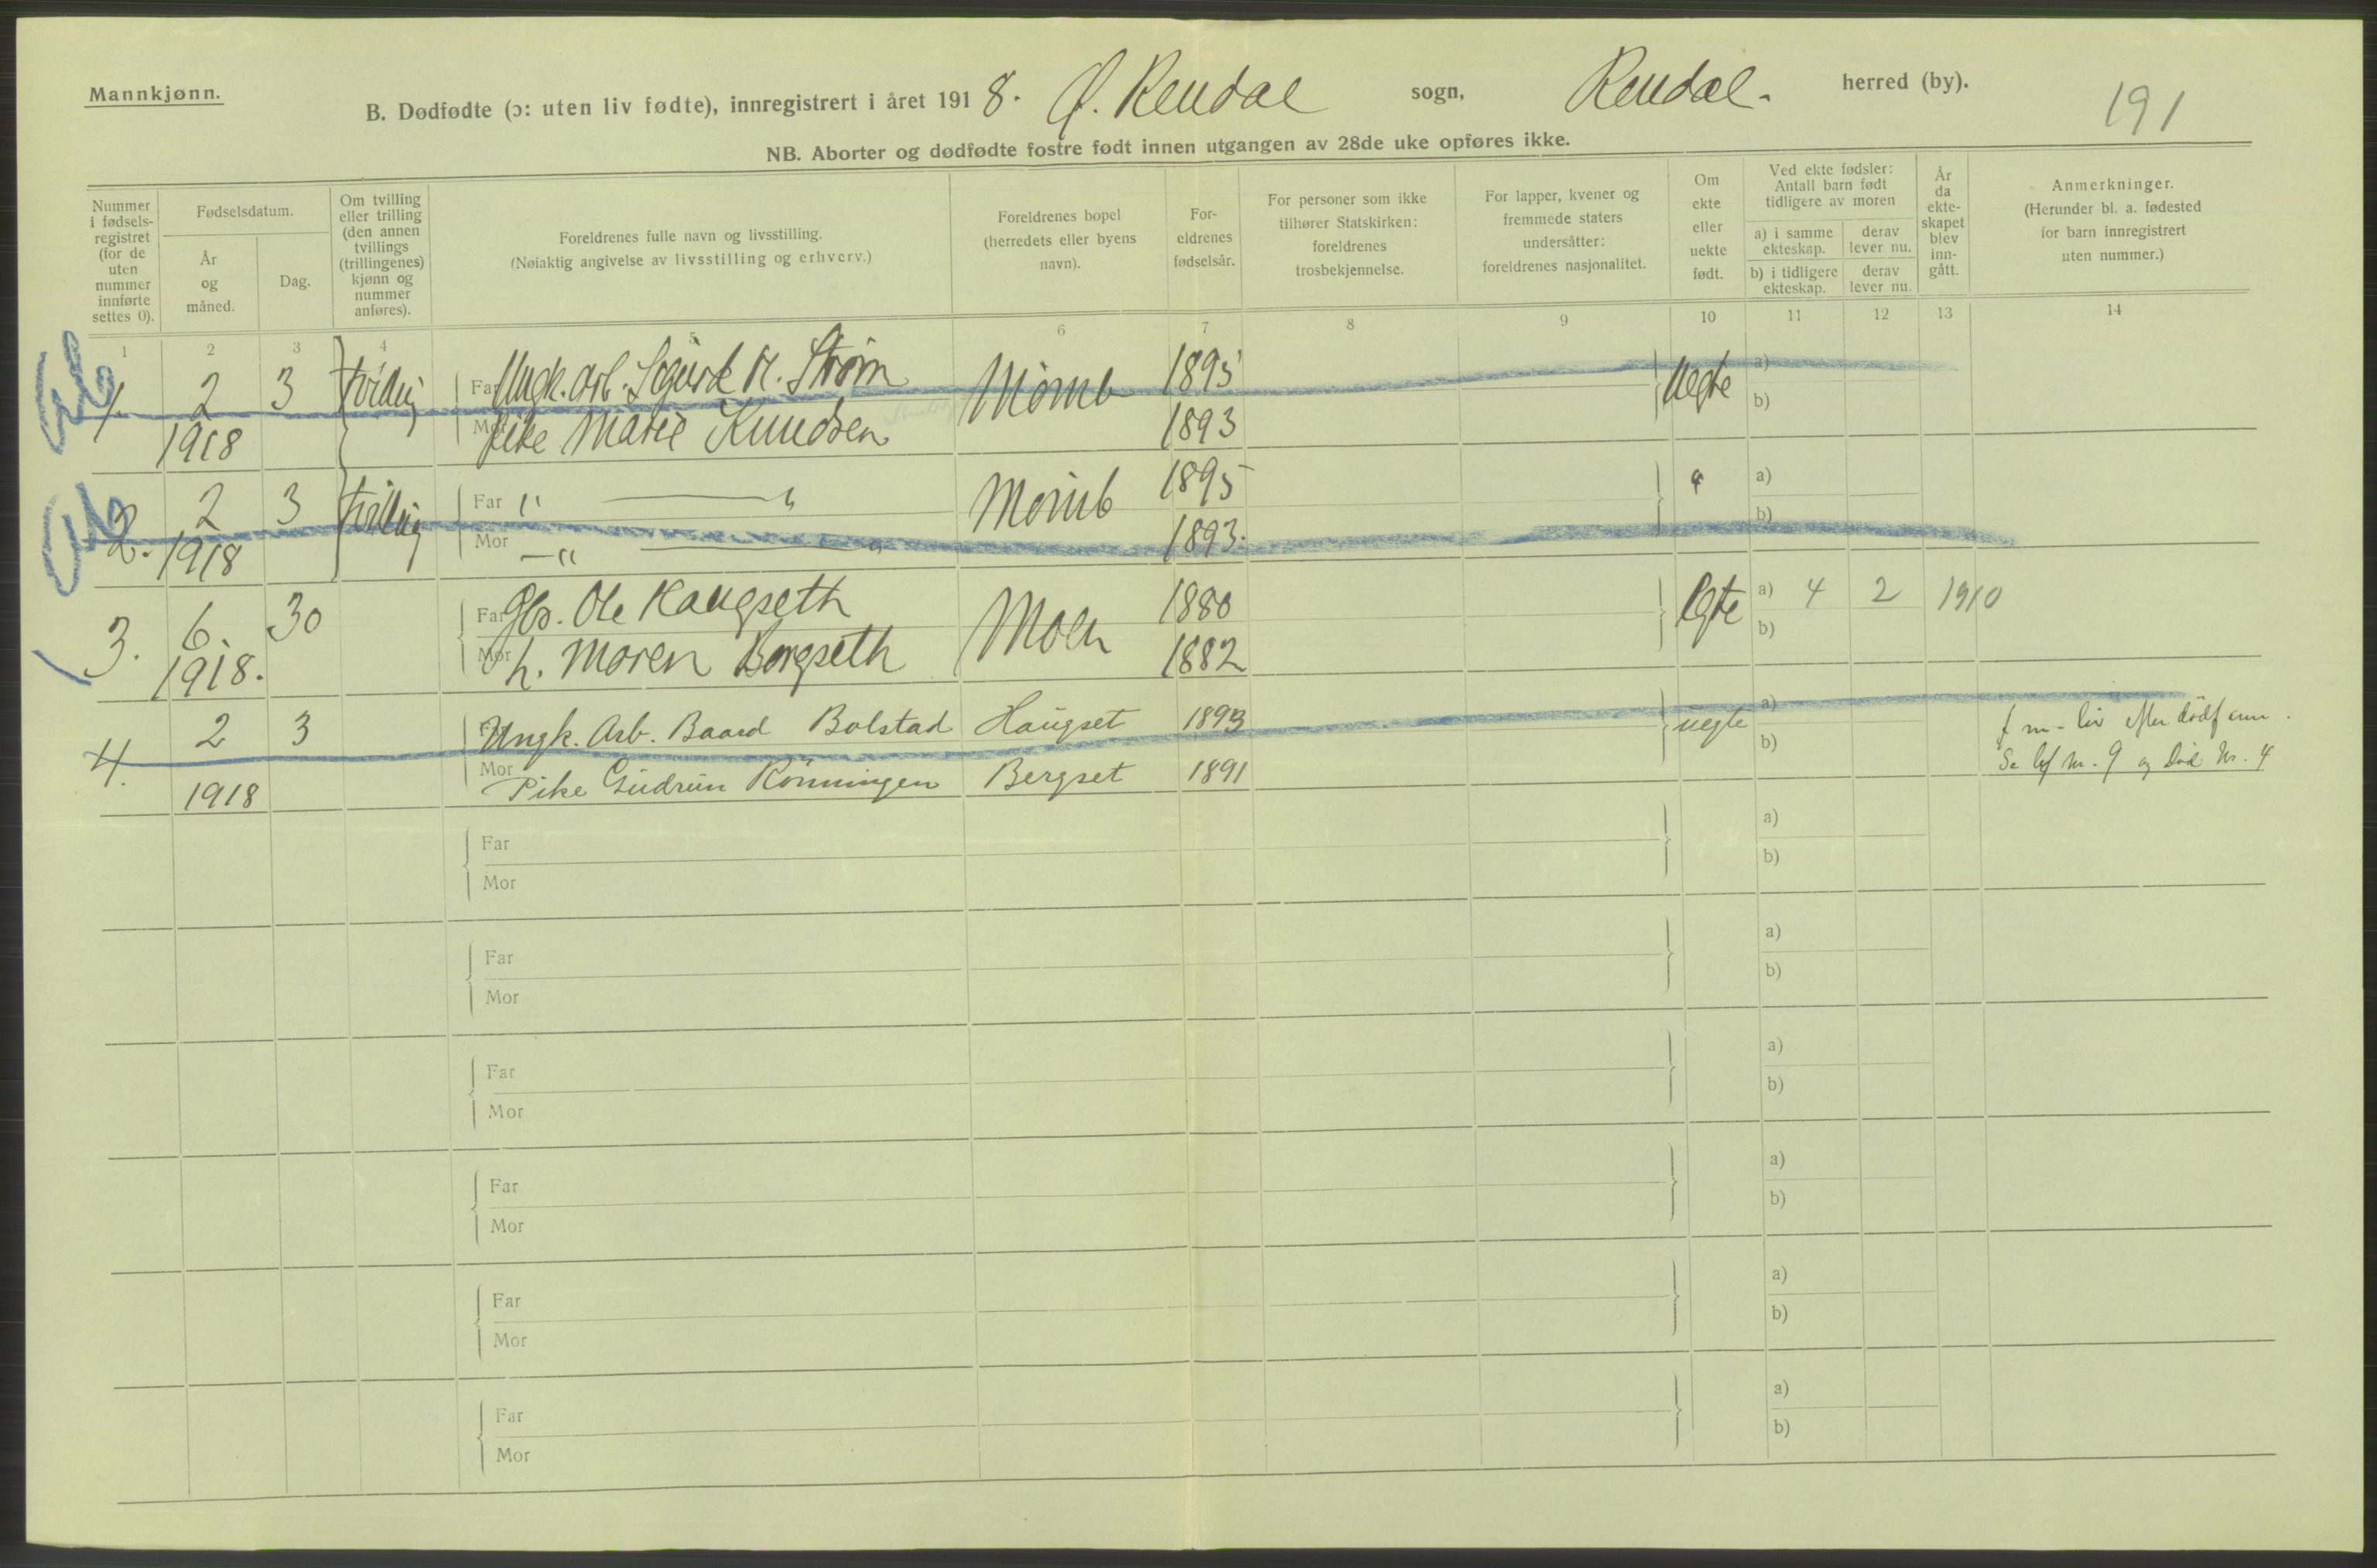 Mannkjønn.
B. Dødfødte (ɔ: uten liv fødte), innregistrert i året 1918. Ø. Rendal sogn, Rendal. herred (by).
191
NB. Aborter og dødfødte fostre født innen utgangen av 28de uke opføres ikke.
Nummer i fødsels-registret (for de uten nummer innførte settes 0).
Fødselsdatum.
År og måned.
Dag.
Om tvilling eller trilling (den annen tvillings (trillingenes) kjønn og nummer anføres).
Foreldrenes fulle navn og livsstilling.
(Nøiaktig angivelse av livsstilling og erhverv.)
Foreldrenes bopel (herredets eller byens navn).
For-eldrenes fødselsår.
For personer som ikke tilhører Statskirken: foreldrenes trosbekjennelse.
For lapper, kvener og fremmede staters undersåtter: foreldrenes nasjonalitet.
Om ekte eller uekte født.
Ved ekte fødsler: Antall barn født tidligere av moren
a) i samme ekteskap.
derav lever nu.
b) i tidligere ekteskap.
derav lever nu.
År da ekte-skapet blev inn-gått.
Anmerkninger.
(Herunder bl. a. fødested for barn innregistrert uten nummer.)
1 2 3 4 5 6 7 8 9 10 11 12 13 14
1. 2 3 Far Ungk. arb. Sigurd M. Strøm 1895 Uegte a)
1918 Mor Pike Marie Knudsen 1893 b)
2. 2 3 Far " " 1895 " a)
1918 Mor " " 1893. b)
3. 6. 30 Far Gbr. Ole Haugseth Moen 1880 Egte a) 4 2 1910
1918. Mor h. Maren Bergseth 1882 b)
4. 2 3 Far Ungk. Arb. Baard Bolstad Haugset 1893 uegte a)
1918 Mor Pike Gudrun Rønningen Bergset 1891 b)
Se lef nr. 9 og Død Nr. 4
Far a)
Mor b)
Far a)
Mor b)
Far a)
Mor b)
Far a)
Mor b)
Far a)
Mor b)
Far a)
Mor b)